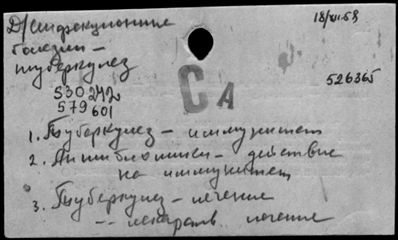 Д/Инфекционные
болезни –
туберкулез
18/XI.58
530242
579601
526365
СА
1. Туберкулез – иммунитет
2. Антибиотики – действие
на иммунитет
3. Туберкулез – лечение
-- лекарств. лечение